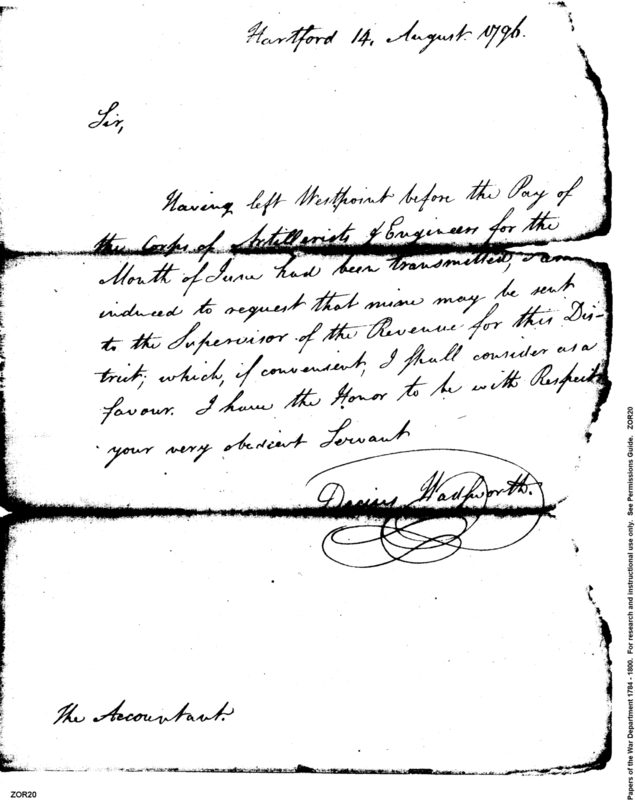 Hartford 14, August. 1796.
Sir,
Having left Westpoint before the Pay of
the Corps of Artillerists & Engineers for the
Month of June had been transmitted, I am
induced to request that mine may be sent
to the Supervisor of the Revenue for this Dis-
trict; which, if convenient, I shall consider as a
favour. I have the Honor to be with Respect
your very obedient Servant
Decius Wadsworth.
The Accountant.
ZOR20
Papers of the War Department 1784 - 1800. For research and instructional use only. See Permissions Guide. ZOR20